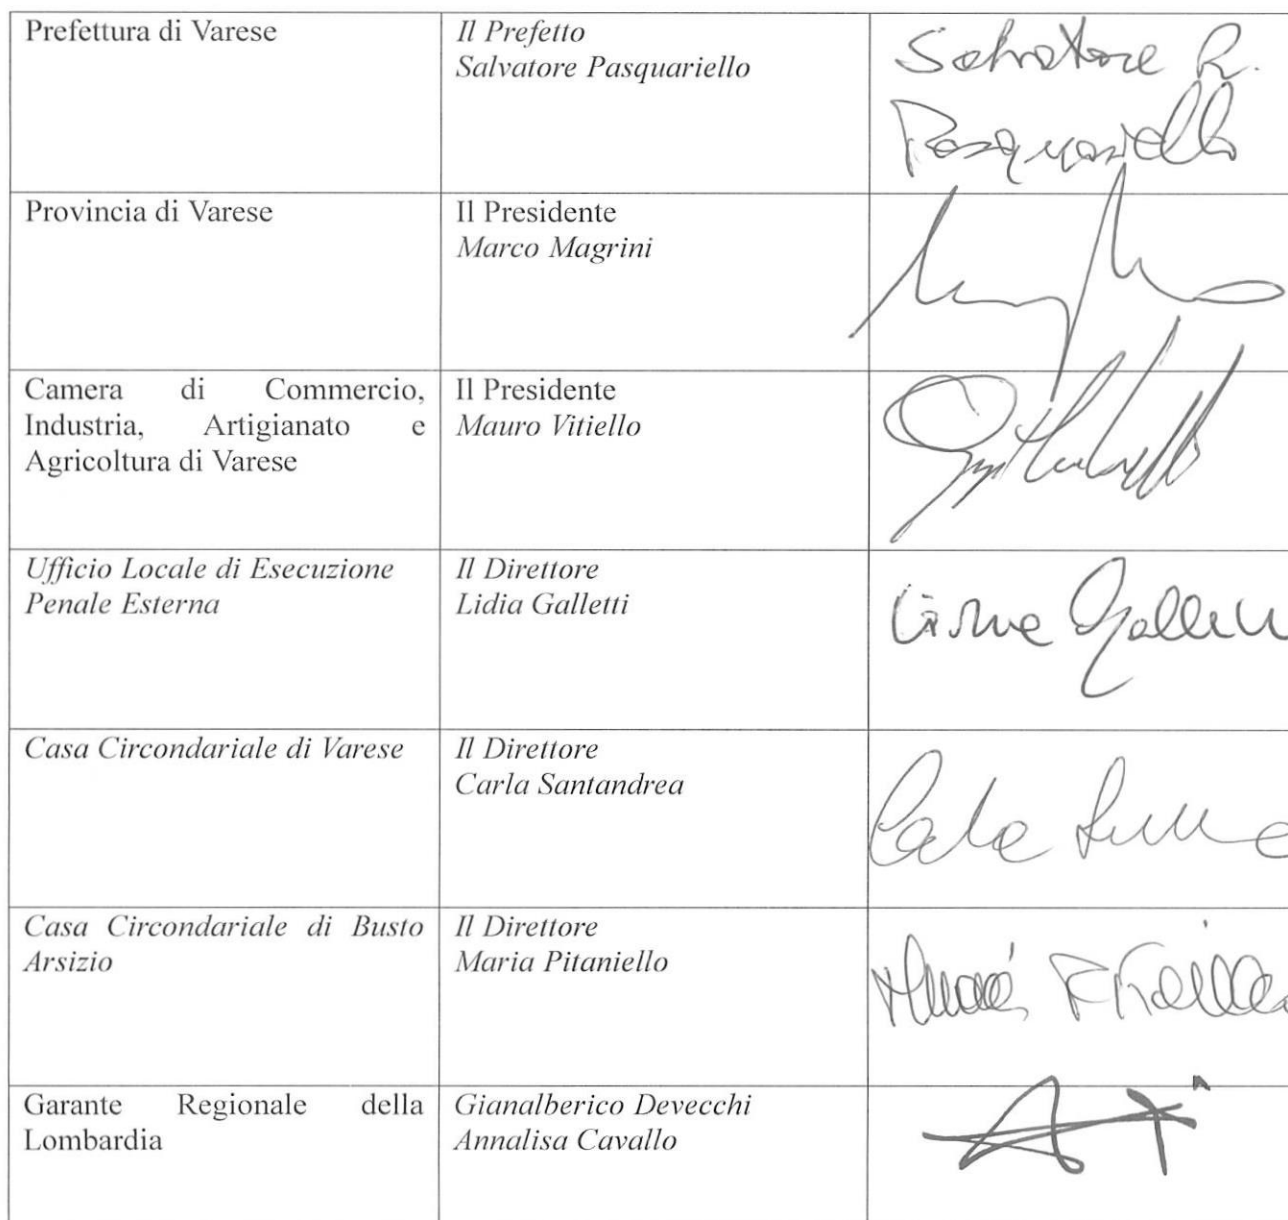 Prefettura di Varese
Il Prefetto
Salvatore Pasquariello
Salvatore R.
Pasquariello
Provincia di Varese
Il Presidente
Marco Magrini
Camera di Commercio,
Industria, Artigianato e
Agricoltura di Varese
Il Presidente
Mauro Vitiello
Ufficio Locale di Esecuzione
Penale Esterna
Il Direttore
Lidia Galletti
Casa Circondariale di Varese
Il Direttore
Carla Santandrea
Casa Circondariale di Busto
Arsizio
Il Direttore
Maria Pitaniello
Garante Regionale della
Lombardia
Gianalberico Devecchi
Annalisa Cavallo